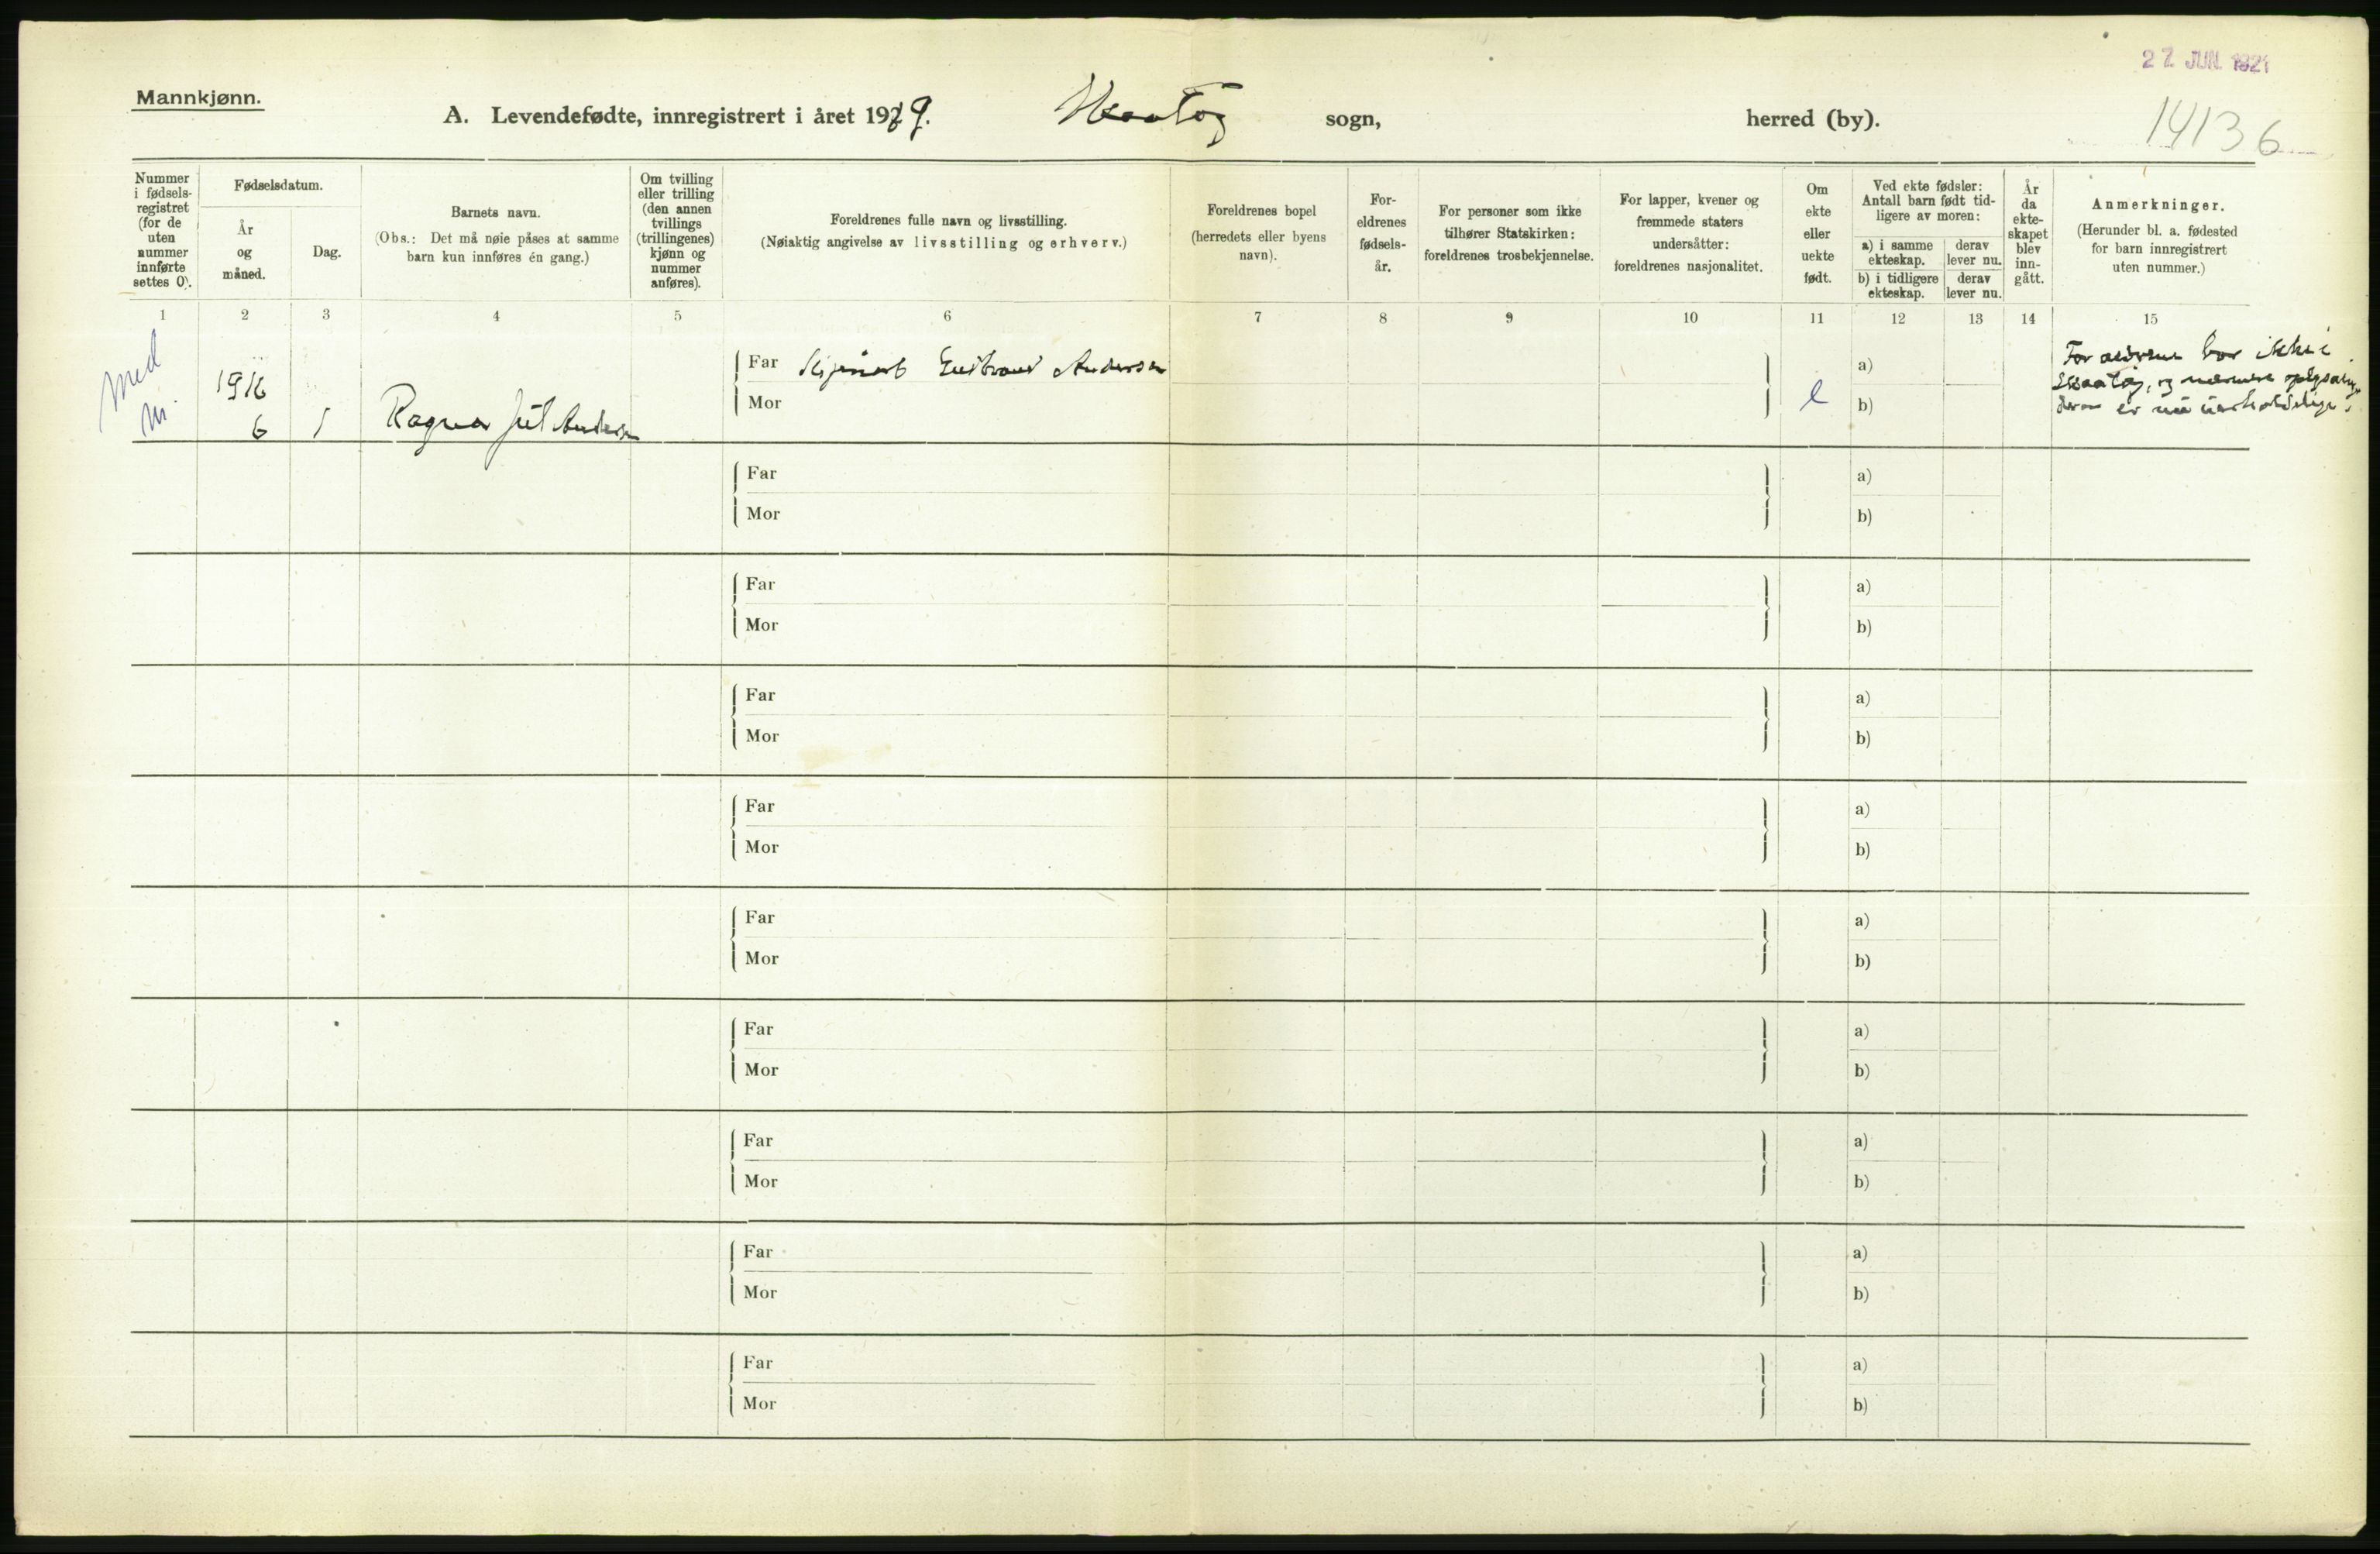 27 JUN. 1921
Mannkjønn.
A. Levendefødte, innregistrert i året 1919. Skaatøy sogn, herred (by).
14136
Nummer
i fødsels-
registret
(for de
uten
nummer
innførte
settes 0).
Fødselsdatum.
År
og
måned.
Dag.
Barnets navn.
(Obs.: Det må nøie påses at samme
barn kun innføres én gang.)
Om tvilling
eller trilling
(den annen
tvillings
(trillingenes)
kjønn og
nummer
anføres).
Foreldrenes fulle navn og livsstilling.
(Nøiaktig angivelse av livsstilling og erhverv.)
Foreldrenes bopel
(herredets eller byens
navn).
For-
eldrenes
fødsels-
år.
For personer som ikke
tilhører Statskirken:
foreldrenes trosbekjennelse.
For lapper, kvener og
fremmede staters
undersåtter:
foreldrenes nasjonalitet.
Om
ekte
eller
uekte
født.
Ved ekte fødsler:
Antall barn født tid-
ligere av moren:
a) i samme
ekteskap.
derav
lever nu.
b) i tidligere
ekteskap.
derav
lever nu.
År
da
ekte-
skapet
blev
inn-
gått.
Anmerkninger.
(Herunder bl. a. fødested
for barn innregistrert
uten nummer.)
1 2 3 4 5 6 7 8 9 10 11 12 13 14 15
Med
nr.
1916
6 1 Ragnar Andersen
Far Andersen
Mor
e
a)
b)
Forældrene bor ikke i
Skaatøy, og nærmere
er
Far a)
Mor b)
Far a)
Mor b)
Far a)
Mor b)
Far a)
Mor b)
Far a)
Mor b)
Far a)
Mor b)
Far a)
Mor b)
Far a)
Mor b)
Far a)
Mor b)